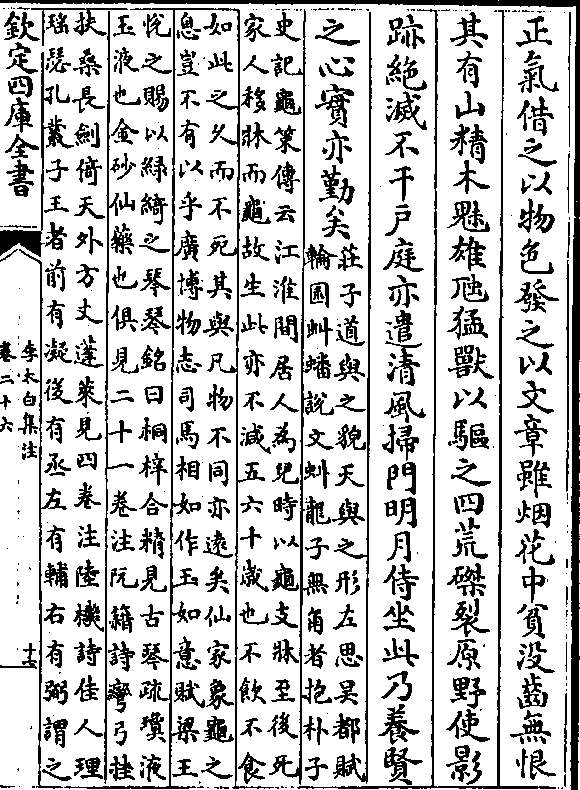 正氣借之以物色發之以文章雖烟花中貧没齒無恨
其有山精木魅雄虺猛獸以驅之四荒磔裂原野使影
跡絶滅不干戸庭亦遣清風掃門明月侍坐此乃養賢
之心實亦勤矣
莊子道與之貌天與之形左思吴都賦
輪囷虯蟠説文虯龍子無角者抱朴子
史記龜策傳云江淮間居人為兒時以龜支牀至後死
家人移牀而龜故生此亦不減五六十歲也不飲不食
如此之久而不死其與凡物不同亦遠矣仙家象龜之
息豈不有以乎廣博物志司馬相如作玉如意賦梁王
悦之賜以緑綺之琴琴銘曰桐梓合精見古琴疏瓊液
玉液也金砂仙藥也俱見二十一卷注阮籍詩彎弓挂
扶桑長劍倚天外方丈蓬萊見四卷注陸機詩佳人理
瑶瑟孔叢子王者前有凝後有丞左有輔右有弼謂之
欽定四庫全書
李太白集注
卷二十六
十七